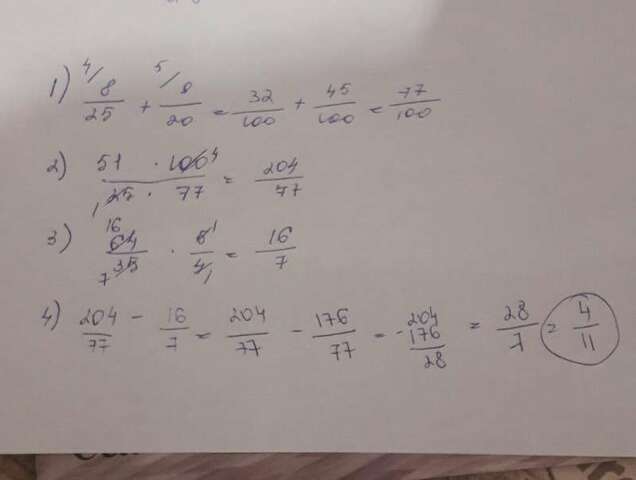 1) 4/ 8/25 + 5/ 9/20 = 32/100 + 45/100 = 77/100
2) 51 · 100 4 / 1 25 · 77 = 204/77
3) 16 64 / 7 35 · 5 1 / 4 1 = 16/7
4) 204/77 - 16/7 = 204/77 - 176/77 = - 204 176 / 28 = 28/7 = 4/11